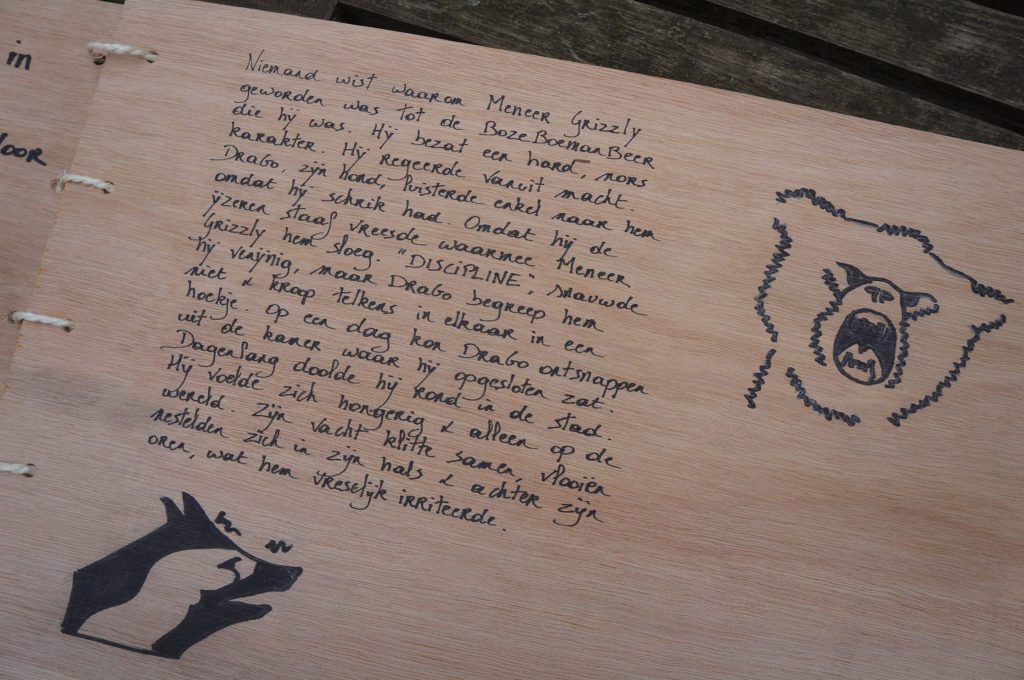 in
door
Niemand wist waarom Meneer Grizzly
geworden was tot de BozeBoemanBeer
die hij was. Hij bezat een hard, nors
karakter. Hij regeerde vanuit macht.
DraGo, zijn hond, luisterde enkel naar hem
omdat hij schrik had. Omdat hij de
ijzeren staaf vreesde waarmee Meneer
Grizzly hem sloeg. "DISCIPLINE", snauwde
hij venijnig, maar DraGo begreep hem
niet & kroop telkens in elkaar in een
hoekje. Op een dag kon DraGo ontsnappen
uit de kamer waar hij opgesloten zat.
Dagenlang doolde hij rond in de stad.
Hij voelde zich hongerig & alleen op de
wereld. Zijn vacht klitte samen, vlooiën
nestelden zich in zijn hals & achter zijn
oren, wat hem vreselijk irriteerde.